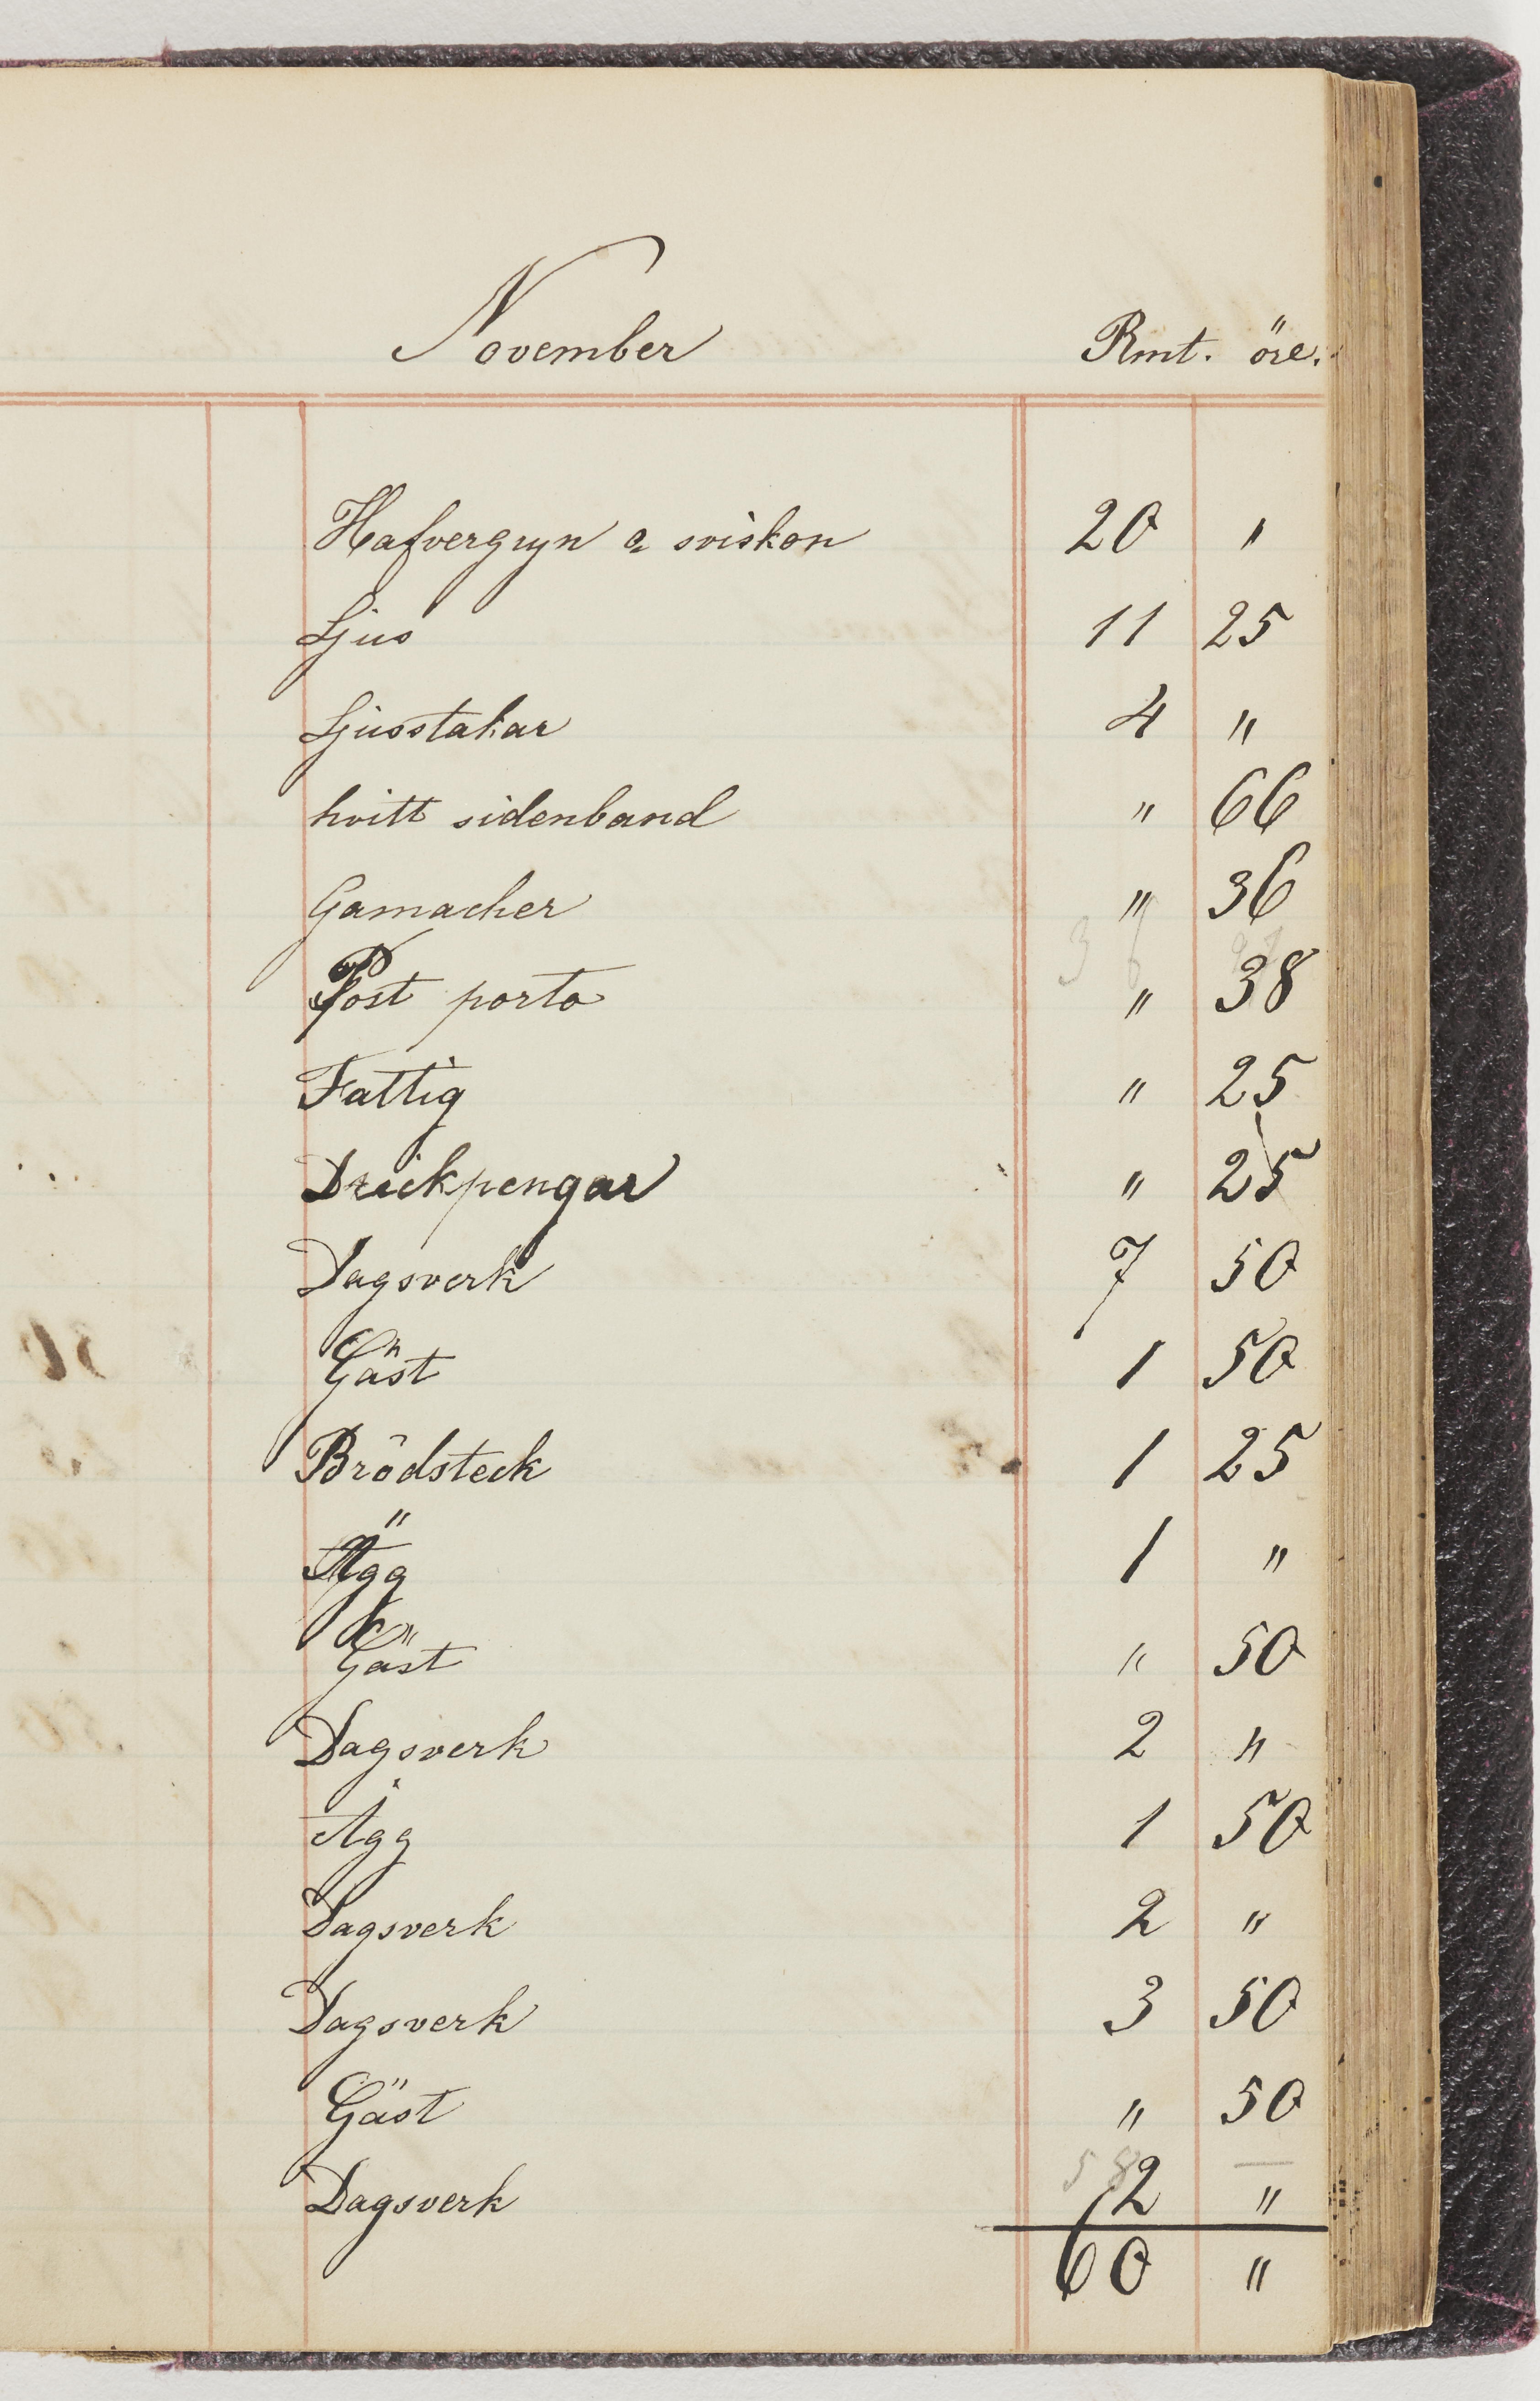 November Rmt. öre.
Hafvergryn & sviskon 20 "
Ljus 11 25
Ljusstakar 4 "
hvitt sidenband " 66
Gamacher " 36
Post porto " 38
Fattig " 25
Drickpengar " 25
Dagsverk 7 50
Gäst 1 50
Brödsteck 1 25
Ägg 1 "
Gäst " 50
Dagsverk 2 "
Ägg 1 50
Dagsverk 2 "
Dagsverk 3 50
Gäst " 50
58 —
Dagsverk 2 "
60 "